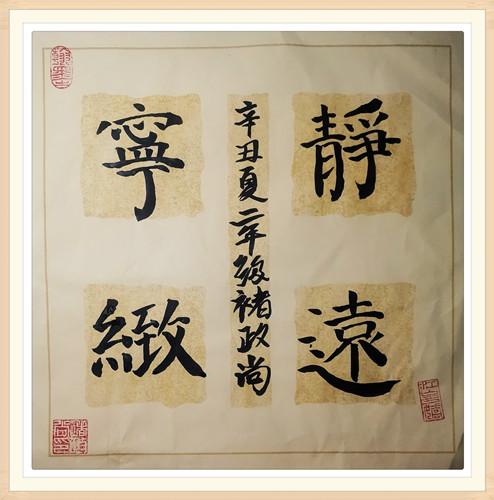 寧靜
緻遠
辛丑夏二年級褚政尚